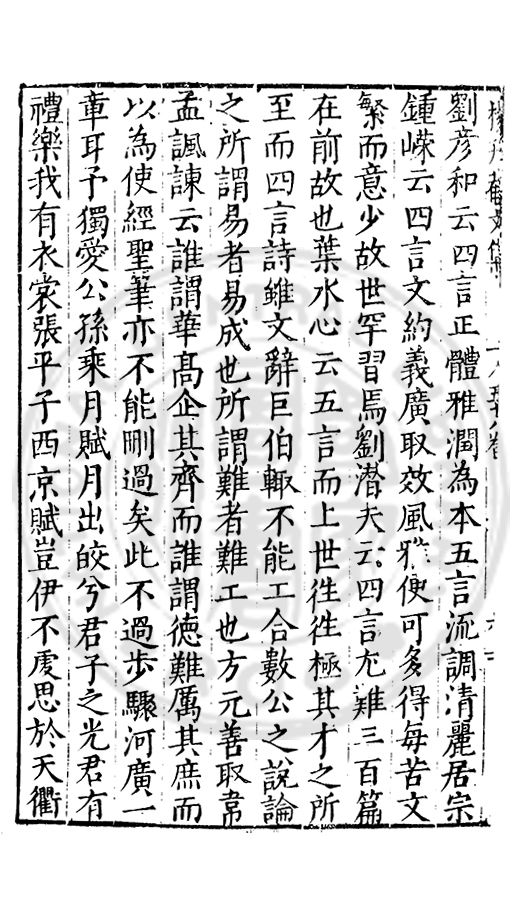 劉彥和云四言正體雅潤為本五言流調清麗居宗
鍾嶸云四言文約義廣取效風雅便可多得每苦文
繁而意少故世罕習焉劉潛夫云四言尤難三百篇
在前故也葉水心云五言而上世徃徃極其才之所
至而四言詩雖文辭巨伯輙不能工合數公之說論
之所謂易者易成也所謂難者難工也方元善取韋
孟諷諫云誰謂華髙企其齊而誰謂德難厲其庶而
以為使經聖筆亦不能刪過矣此不過步驟河廣一
章耳予獨愛公孫乘月賦月出皎兮君子之光君有
禮樂我有衣裳張平子西京賦豈伊不虔思於天衢